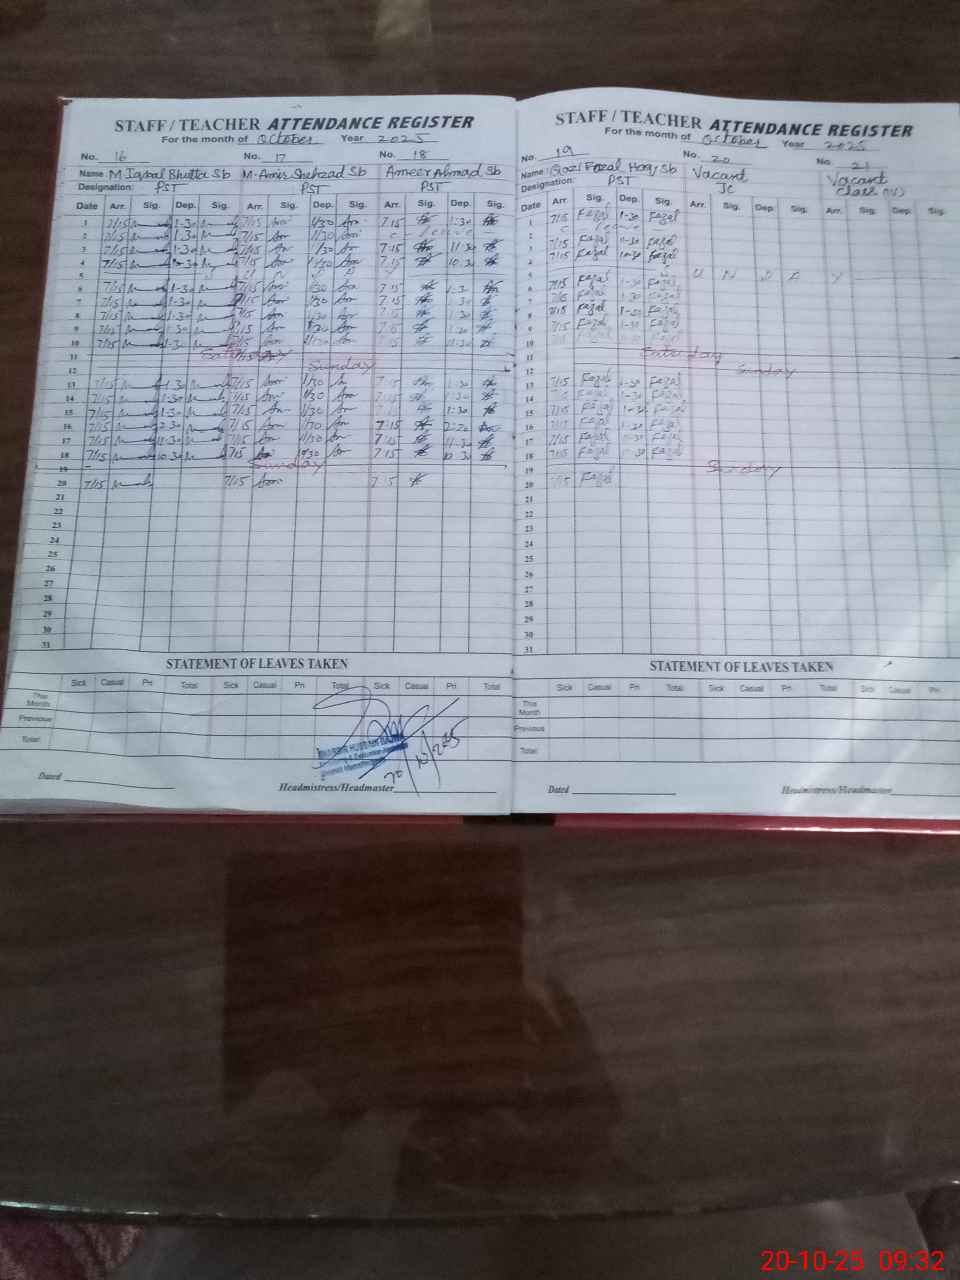 STAFF / TEACHER ATTENDANCE REGISTER
For the month of October Year 2025
No. 16 No. 17 No. 18
Name M Iqbal Bhutta Sb M. Amir Shehzad Sb Ameer Ahmad Sb
Designation: PST PST PST
Date Arr. Sig. Dep. Sig. Arr. Sig. Dep. Sig. Arr. Sig. Dep. Sig.
1 7/15 1-30 7/15 1/30 7:15 1:30
2 7/15 1-30 7/15 1/30 c - leave -
3 7/15 1-30 7/15 1/30 7:15 11:30
4 7/15 7/15 1/30 7:15 10:30
5 S U N D A Y
6 7/15 1-30 7/15 1/30 7:15 1:30
7 7/15 1-30 7/15 1/30 7:15 1:30
8 7/15 1-30 7/15 1/30 7:15 1:30
9 7/15 1-30 7/15 1/30 7:15 1:30
10 7/15 1-30 7/15 7:15 11:30
11 Saturday
12 Sunday
13 7/15 1-30 7/15 1/30 7:15 1:30
14 7/15 1-30 7/15 1/30 7:15 1:30
15 7/15 1-30 7/15 1/30 7:15 1:30
16 7/15 7/15 7:15
17 7/15 7/15 7:15 11:30
18 7/15 10-30 7/15 7:15 10:30
19 Sunday
20 7/15 7/15 7:15
21
22
23
24
25
26
27
28
29
30
31
STATEMENT OF LEAVES TAKEN
Sick Casual Pri Total Sick Casual Pri Total Sick Casual Pri Total
This Month
Previous
Total
20/10/2025
Dated
Headmistress/Headmaster
STAFF / TEACHER ATTENDANCE REGISTER
For the month of October Year 2025
No. 19 No. 20 No. 21
Name: Qazi Fazal Haq Sb Vacant Vacant
Designation: PST JC Class (IV)
Date Arr. Sig. Dep. Sig. Arr. Sig. Dep. Sig. Arr. Sig. Dep. Sig.
1 7/15 Fazal 1-30 Fazal
2 c leave
3 7/15 Fazal 11-30 Fazal
4 7/15 Fazal 10-30 Fazal
5 S U N D A Y
6 7/15 Fazal 1-30 Fazal
7 7/15 Fazal 1-30 Fazal
8 7/15 Fazal 1-30 Fazal
9 7/15 Fazal 1-30 Fazal
10 Fazal Fazal
11 Saturday
12 Sunday
13 7/15 Fazal 1-30 Fazal
14 7/15 Fazal 1-30 Fazal
15 7/15 Fazal 1-30 Fazal
16 7/15 Fazal 1-30 Fazal
17 7/15 Fazal Fazal
18 7/15 Fazal Fazal
19 Sunday
20 7/15 Fazal
21
22
23
24
25
26
27
28
29
30
31
STATEMENT OF LEAVES TAKEN
Sick Casual Pri Total Sick Casual Pri Total Sick Casual Pri
This Month
Previous
Total
Dated
Headmistress/Headmaster
20-10-25 09:32